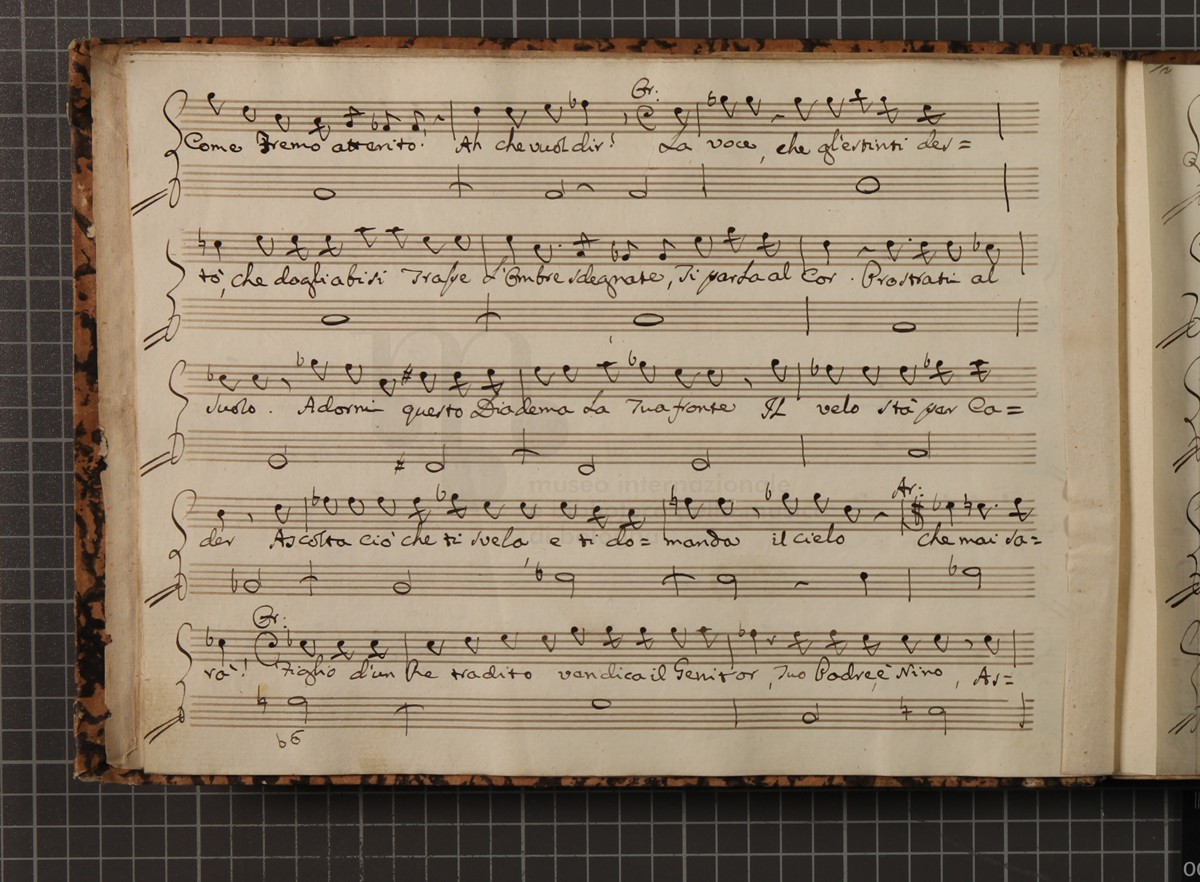 Or:
Come Fremo atterito! Ah che vuol dir! La voce, che gl'estinti des=
tò, che dagli abisi Trasse L'Ombre sdegnate, Ti parla al Cor. Prostrati al
suolo. Adorni questo Diadema La Tua fronte Il velo stà per Ca=
museo internazionale
Ar:
der Ascolta ciò che ti svela e ti do= manda il cielo che mai sa=
Or:
rà! Figlio d'un Re tradito vendica il Genitor, Tuo Padre, è Nino, As=
b6